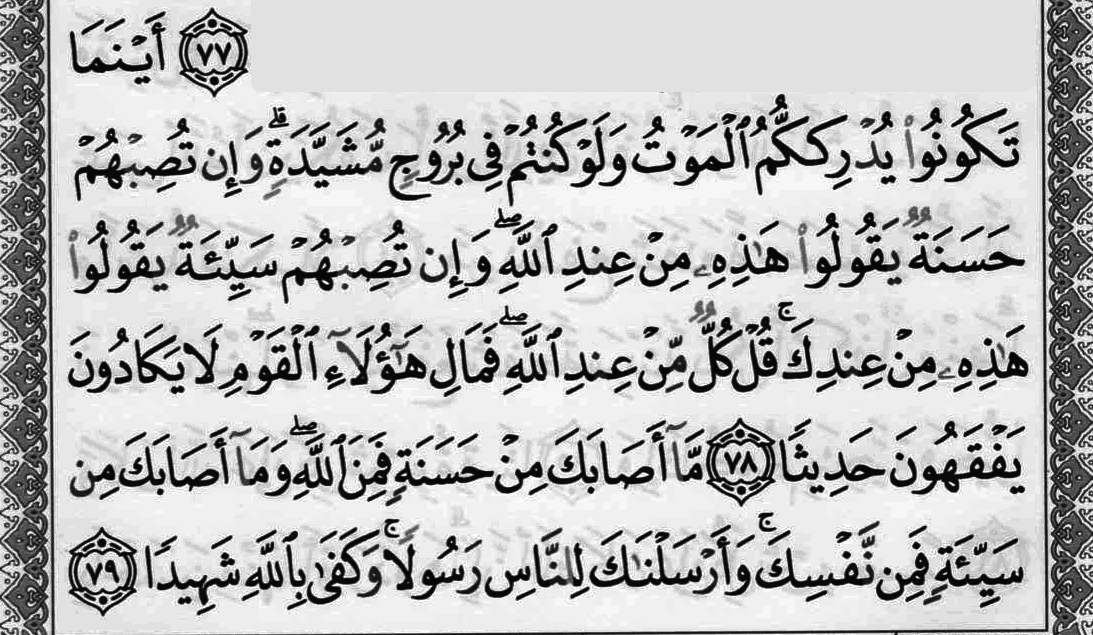 ﴿٧٧﴾ أَيْنَمَا
تَكُونُوا۟ يُدْرِككُّمُ ٱلْمَوْتُ وَلَوْ كُنتُمْ فِى بُرُوجٍ مُّشَيَّدَةٍ ۗ وَإِن تُصِبْهُمْ
حَسَنَةٌ يَقُولُوا۟ هَٰذِهِۦ مِنْ عِندِ ٱللَّهِ ۖ وَإِن تُصِبْهُمْ سَيِّئَةٌ يَقُولُوا۟
هَٰذِهِۦ مِنْ عِندِكَ ۚ قُلْ كُلٌّ مِّنْ عِندِ ٱللَّهِ ۖ فَمَالِ هَٰٓؤُلَآءِ ٱلْقَوْمِ لَا يَكَادُونَ
يَفْقَهُونَ حَدِيثًا ﴿٧٨﴾ مَّآ أَصَابَكَ مِنْ حَسَنَةٍ فَمِنَ ٱللَّهِ ۖ وَمَآ أَصَابَكَ مِن
سَيِّئَةٍ فَمِن نَّفْسِكَ ۚ وَأَرْسَلْنَٰكَ لِلنَّاسِ رَسُولًا ۚ وَكَفَىٰ بِٱللَّهِ شَهِيدًا ﴿٧٩﴾